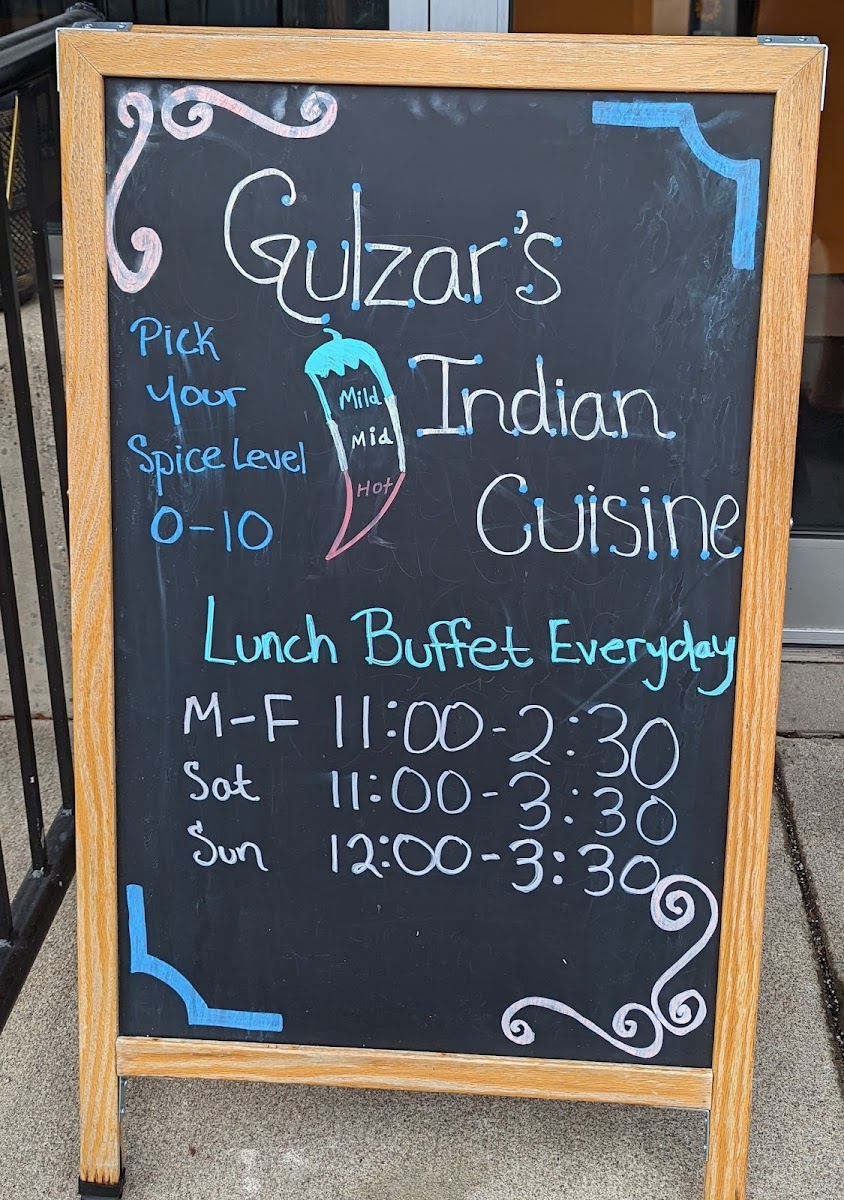 Gulzar's
Indian
Cuisine
Pick
your
Spice Level
0-10
Mild
Mid
Hot
Lunch Buffet Everyday
M-F 11:00-2:30
Sat 11:00-3:30
Sun 12:00-3:30